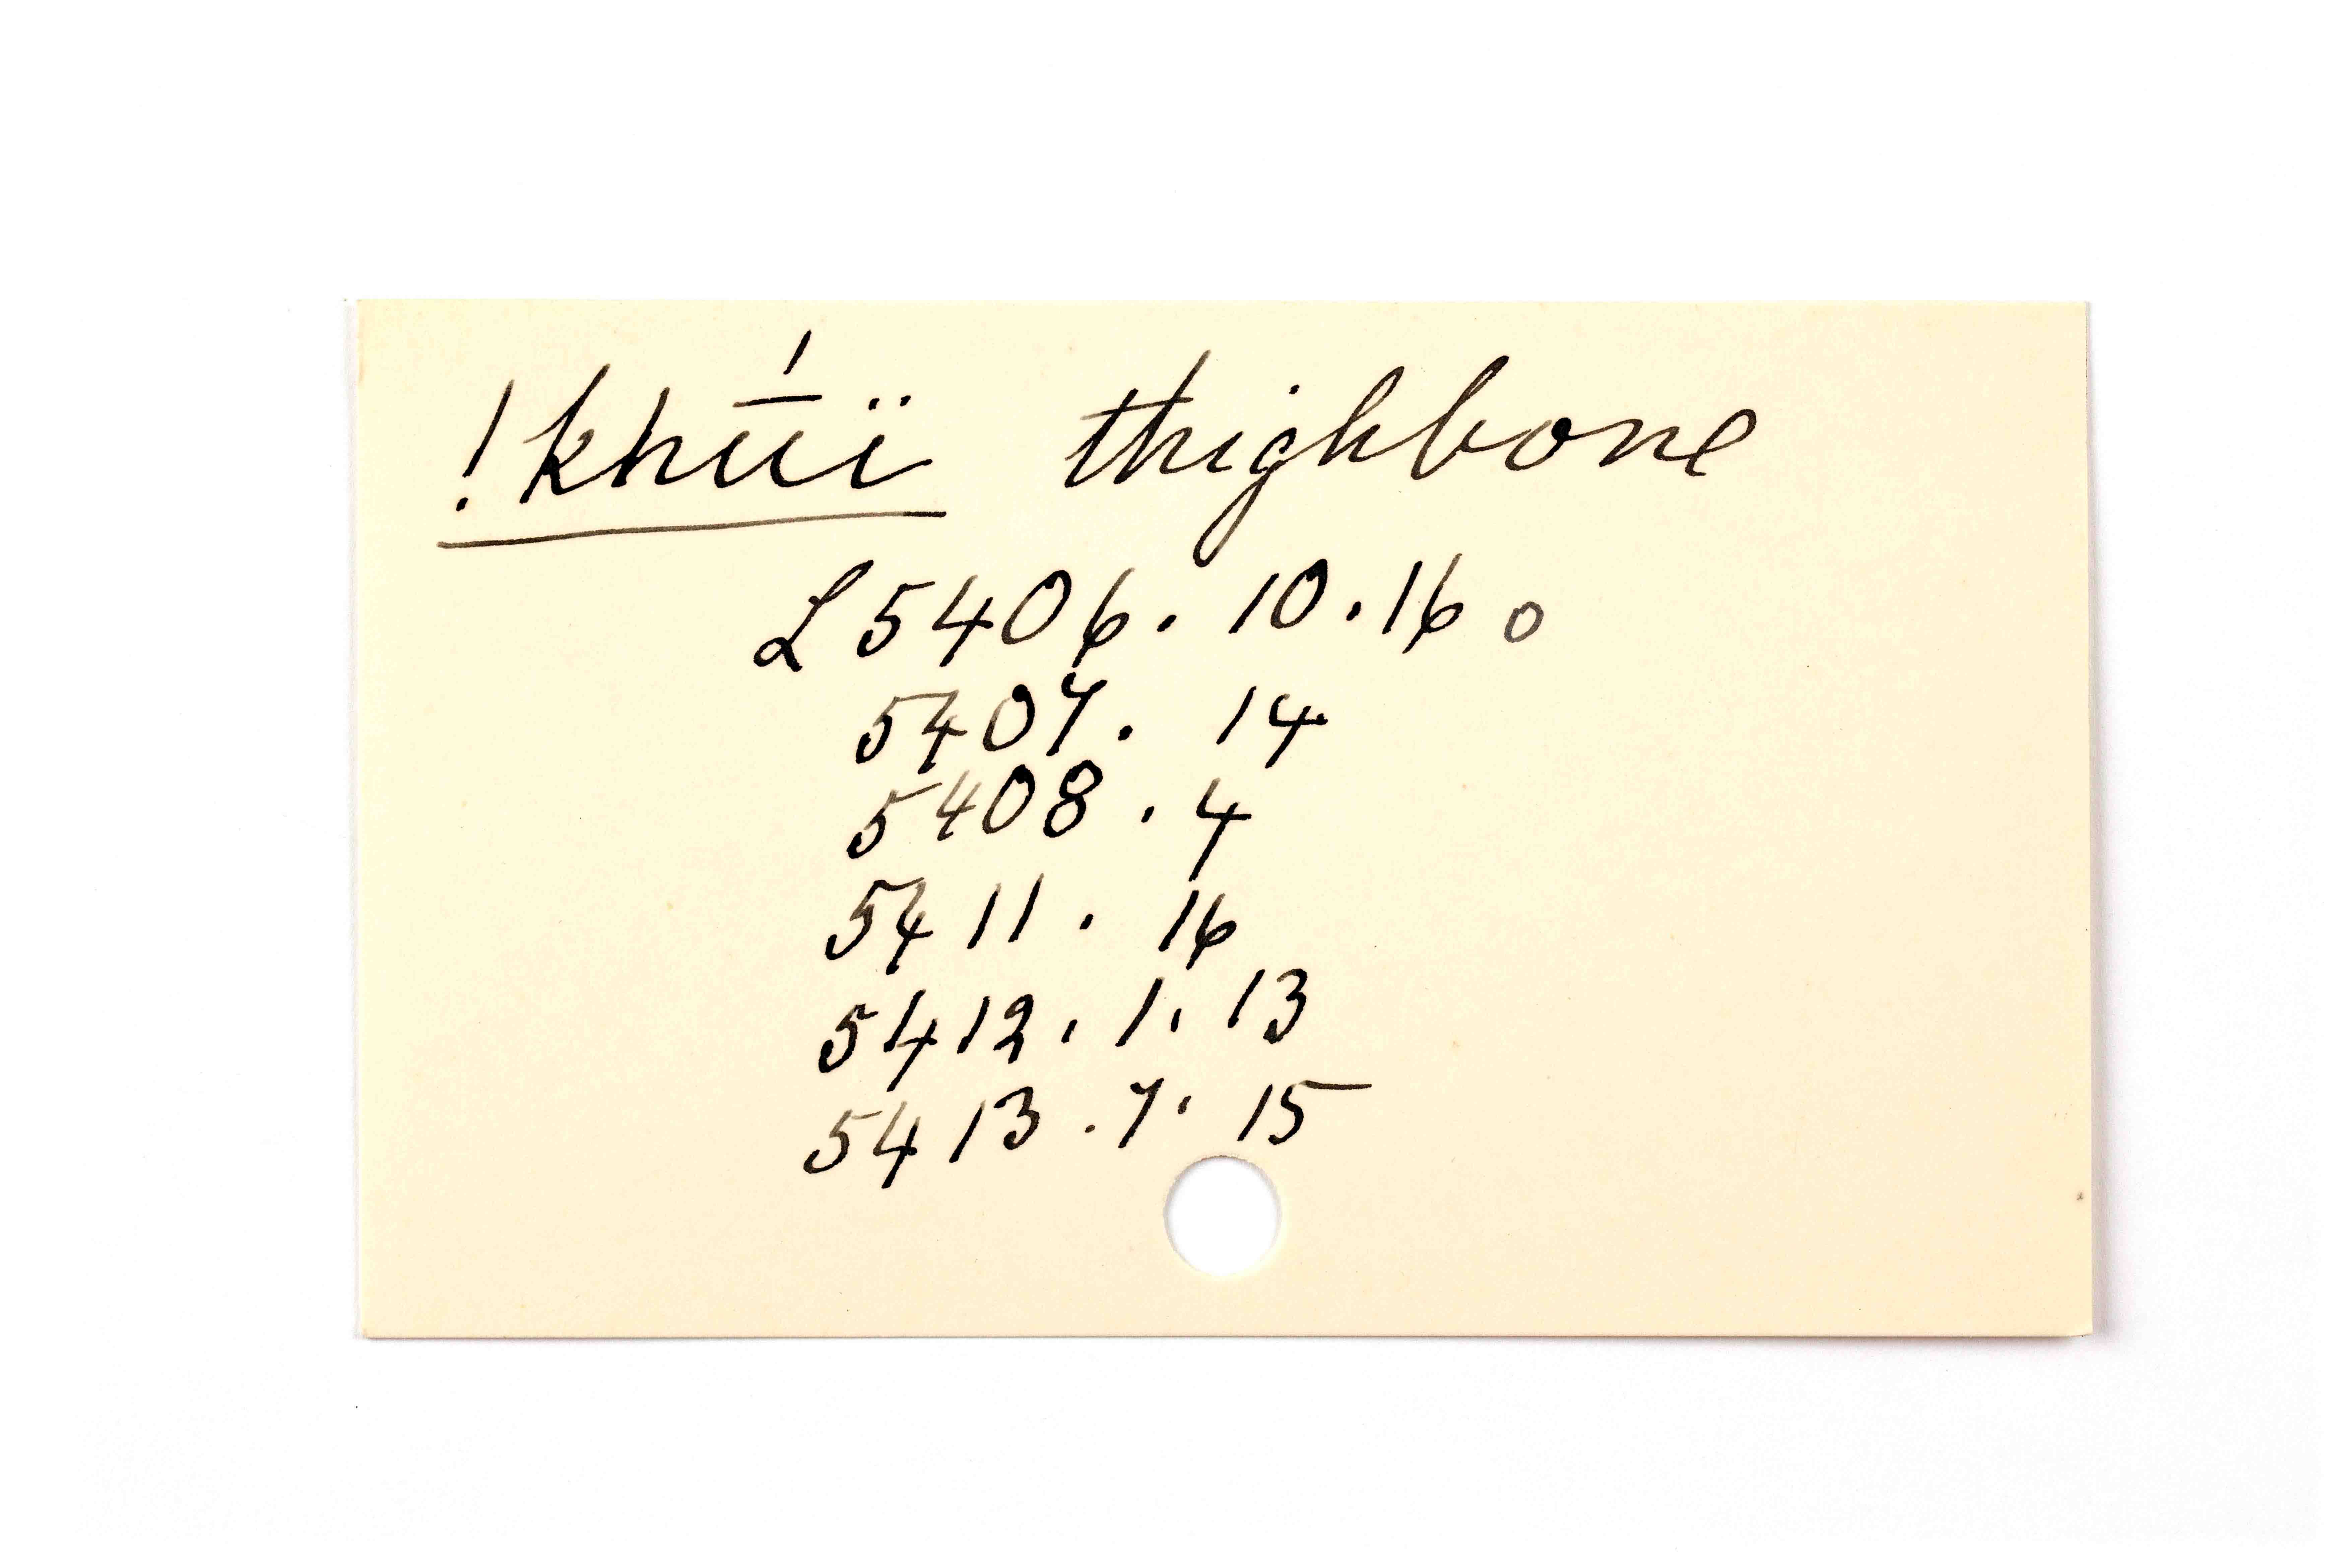 !khū́ï thighbone
L 5406. 10. 16 o
5407. 14
5408. 4
5411. 16
5412. 1. 13
5413. 7. 15